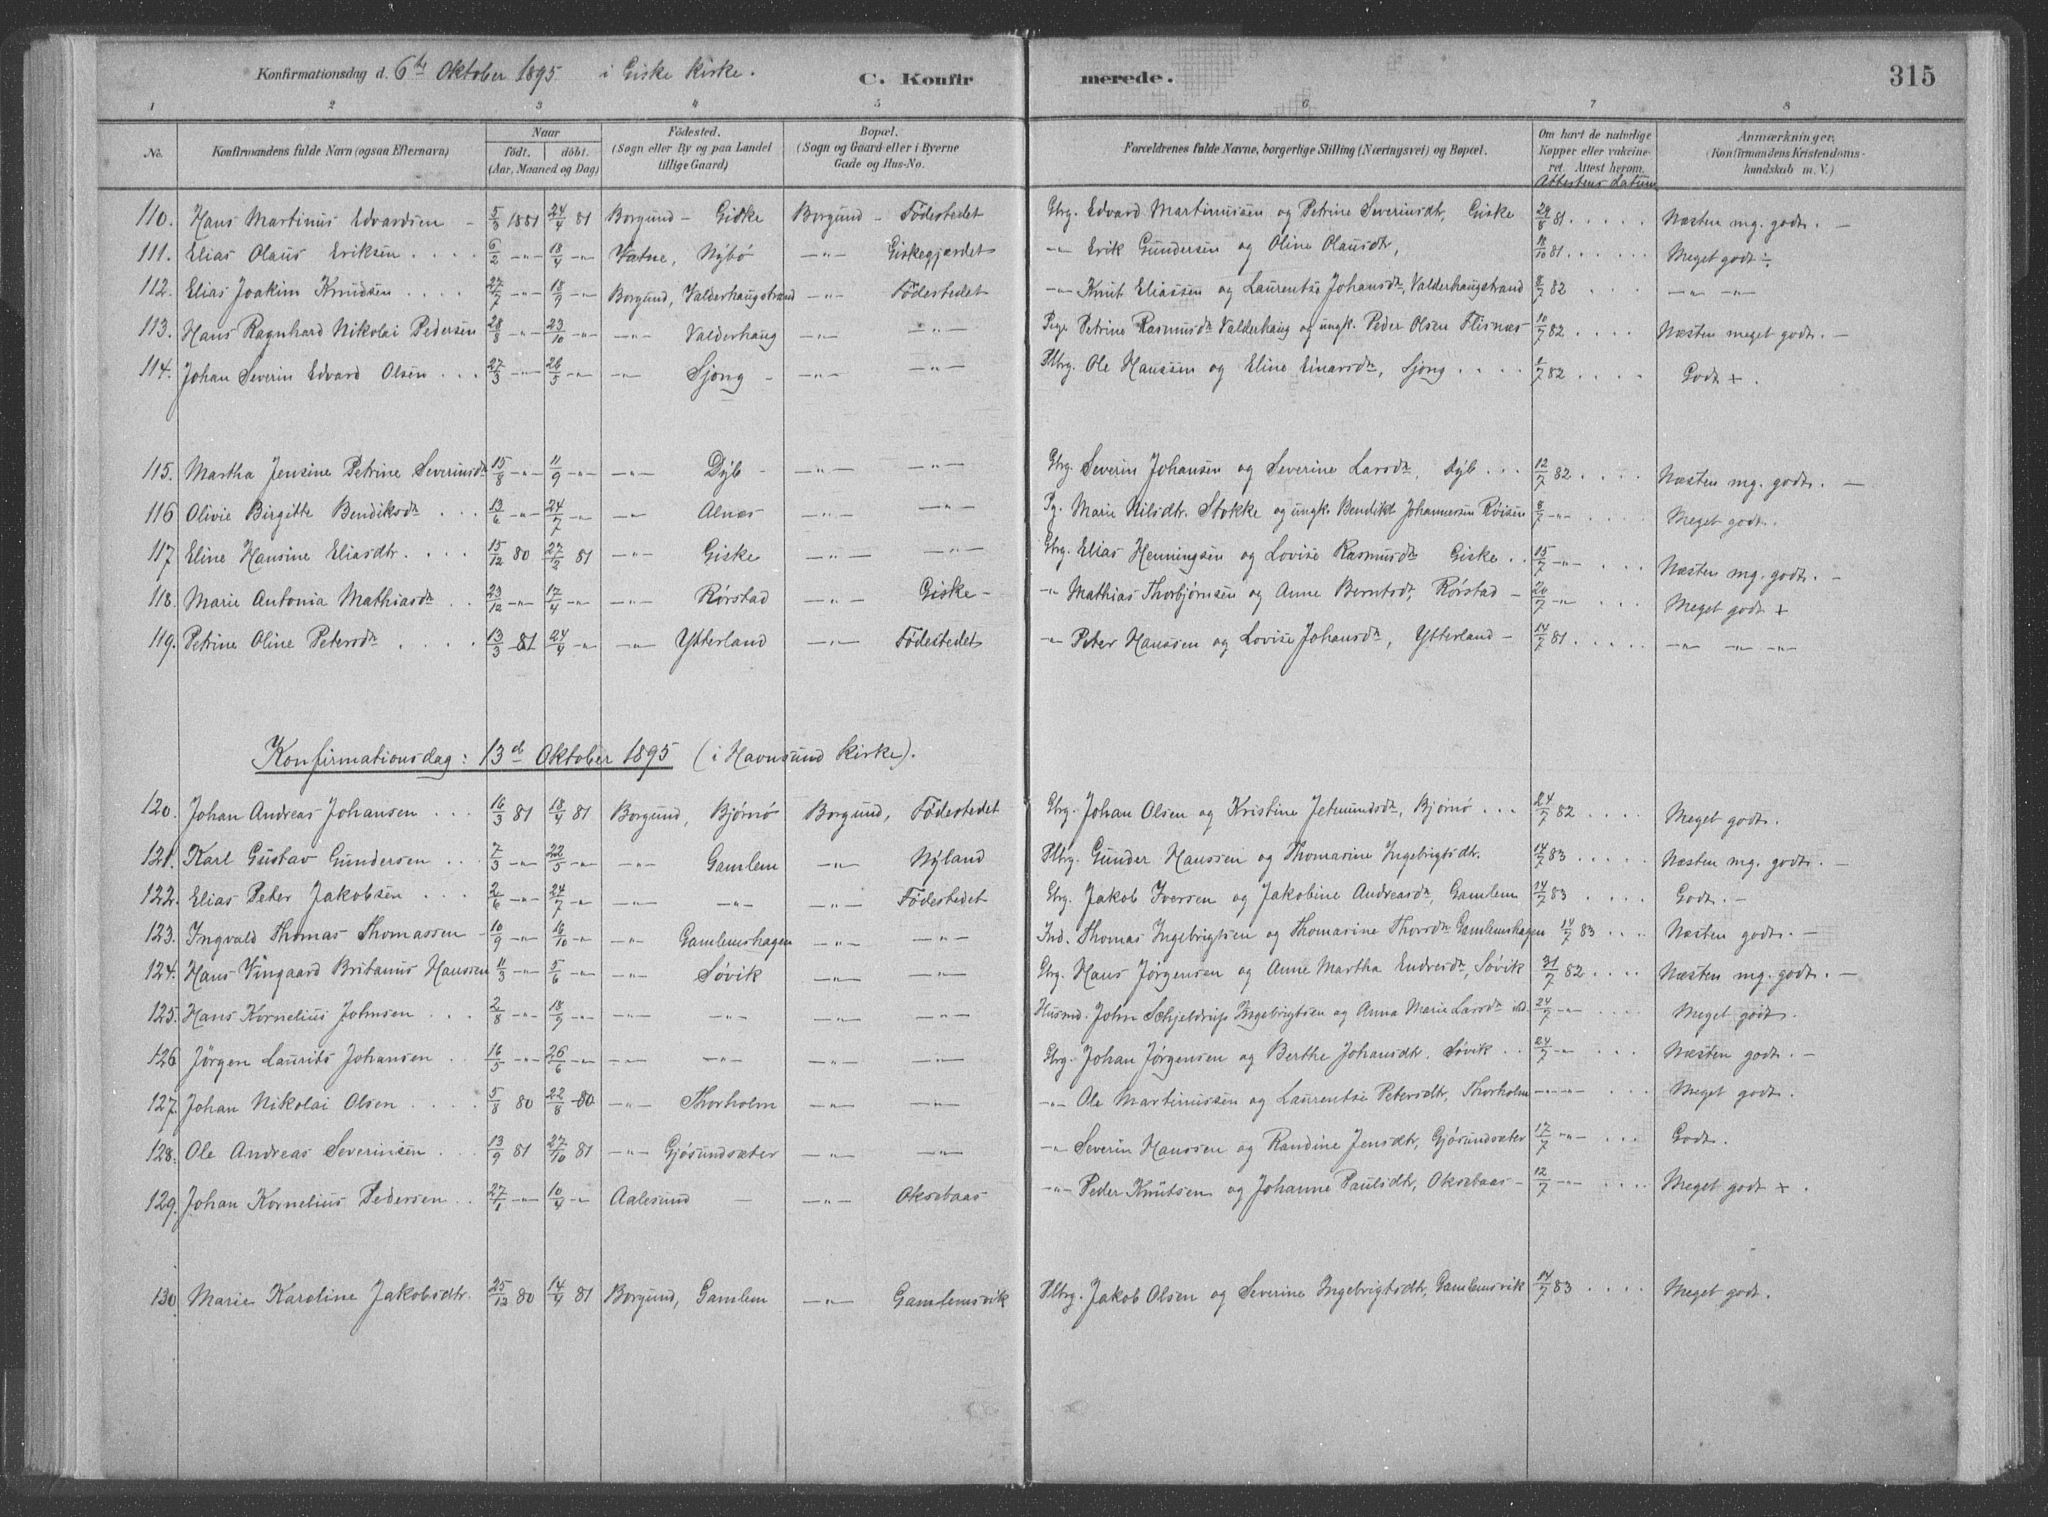 Konfirmationsdag d. 6te Oktober 1895 i Giske kirke. C. Konfirmerede. 315
1 2 3 4 5 6 7 8
No. Konfirmandens fulde Navn (ogsaa Efternavn) Naar födt. döbt. (Aar, Maaned og Dag) Födested. (Sogn eller By og paa Landet tillige Gaard) Bopæl. (Sogn og Gaard eller i Byerne Gade og Hus-No. Forældrenes fulde Navne, borgerlige Stilling (Næringsvei) og Bopæl. Om havt de naturlige Kopper eller vakcineret. Attest herom. Attestens datum Anmærkninger, (Konfirmandens Kristendomskundskab m. V.)
110. Hans Martinus Edvardsen - 5/3 1881 24/4 81 Borgund - Giske Borgund - Födestedet Gbrg. Edvard Martinussen og Petrine Severinsdtr, Giske 29/8 81 . . . . Næsten mg. godt. -
111. Elias Olaus Eriksen . . . . 6/2 -"- 18/4 -"- Vatne, Nybö -"- Giskegjærdet -"- Erik Gundersen og Oline Olausdtr, 18/10 81 . . . . Meget godt ÷
112. Elias Joakim Knudsen . . . . 27/7 -"- 18/9 -"- Borgund, Valderhaugstrand -"- Födestedet -"- Knut Eliassen og Laurentse Johansdtr, Valderhaugstrand 8/7 82 . . . . -"- -"-
113. Hans Ragnhard Nikolai Pedersen 28/8 -"- 23/10 -"- -"- Valderhaug -"- -"- Pige Petrine Rasmusdtr Valderhaug og ungk. Peder Olsen Flisnæs 10/7 82 . . . . Næsten meget godt. -
114. Johan Severin Edvard Olsen . . . 27/3 -"- 26/5 -"- -"- Sjong - -"- -"- Plbrg. Ole Hanssen og Eline Einarsdtr, Sjong . . . . 6/7 82 . . . . Godt + .
115. Martha Jensine Petrine Severinsdtr 15/8 -"- 11/9 -"- -"- Dyb - -"- -"- Gbrg. Severin Johansen og Severine Larsdtr, Dyb . . . 12/7 82 . . . . Næsten mg. godt. -
116 Olivie Birgitte Bendiksdtr . 13/6 -"- 24/7 -"- -"- Alnæs -"- -"- Pg. Marie Nilsdtr. Stokke og ungk. Bendikt Johannessen Röisen 8/7 -"- . . . . Meget godt.
117. Eline Hansine Eliasdtr. . . . 15/12 80 27/2 81 -"- Giske -"- -"- Gbrg. Elias Henningsen og Lovise Rasmusdtr Giske . . 15/7 -"- . . . Næsten mg. godt. -
118. Marie Antonia Mathiasdtr . . 23/12 -"- 17/4 -"- -"- Rörstad -"- Giske - -"- Mathias Thorbjörnsen og Anne Berntsdtr, Rörstad - 20/7 -"- . . . Meget godt +
119. Petrine Oline Petersdtr . . . . 13/3 81 24/4 -"- -"- Ytterland -"- Födestedet -"- Peter Hanssen og Lovise Johansdtr, Ytterland - 14/7 81 . . . . . -"- -"- -"-
Konfirmationsdag: 13d Oktober 1895 (i Havnsund kirke).
120. Johan Andreas Johansen . . . 16/3 81 18/4 81 Borgund, Bjørnö Borgund, Födestedet Gbrg. Johan Olsen og Kristine Jetmundsdtr, Bjørnö . . . 24/7 82 . . . . Meget godt.
121. Karl Gustav Gundersen . . . 7/3 -"- 22/5 -"- -"- Gamlem -"- Nyland Plbrg. Gunder Hanssen og Thomasine Ingebrigtsdtr. 14/7 83 . . . . . Næsten mg. godt. -
122. Elias Peter Jakobsen . . . 2/6 -"- 24/7 -"- -"- -"- -"- Födestedet Gbrg. Jakob Iversen og Jakobine Andreasdtr, Gamlem 14/7 83 . . . . Godt. -
123. Ingvald Thomas Thomassen - 10/9 -"- 16/10 -"- -"- Gamlemshagen -"- -"- Ind. Thomas Ingebrigtsen og Thomasine Thorsdtr Gamlemshagen 14/7 83 . . . Næsten godt. -
124. Hans Vingaard Britanus Hanssen 11/3 -"- 5/6 -"- -"- Sövik -"- -"- Gbrg. Hans Jörgensen og Anne Martha Endresdtr, Sövik 31/7 82 . . . . Næsten mg. godt. -
125. Hans Kornelius Johnsen . . . 2/8 -"- 18/9 -"- -"- -"- -"- -"- Husmd. John Schjeldrup Ingebrigtsen og Anna Marie Larsdtr ibd. 24/7 -"- . . . . Meget godt.
126 Jörgen Laurits Johansen . . 16/5 -"- 26/6 -"- -"- -"- -"- -"- Gbrg. Johan Jörgensen og Berthe Johansdtr. Sövik . . 24/7 -"- . . . . Næsten godt. -
127. Johan Nikolai Olsen . . . . 5/8 80 22/8 80 -"- Thorholm -"- -"- -"- Ole Martinussen og Laurentse Petersdtr, Thorholm -"- -"- . . . Meget godt.
128. Ole Andreas Severinsen . . . 13/9 81 27/10 81 -"- Gjösundsæter -"- -"- -"- Severin Hanssen og Randine Jensdtr, Gjösundsæter 17/7 -"- . . . Godt.
129. Johan Kornelius Pedersen . . 27/1 -"- 10/4 -"- Aalesund - -"- Oksebaas -"- Peder Knutsen og Johanne Paulsdtr, Oksebaas - 12/7 -"- . . . Meget godt + .
130 Marie Karoline Jakobsdtr. 25/12 80 14/4 81 Borgund, Gamlem -"- Gamlemsvik Plbrg. Jakob Olsen og Severine Ingebrigtsdtr, Gamlemsvik 14/7 83 . . . . Meget godt.